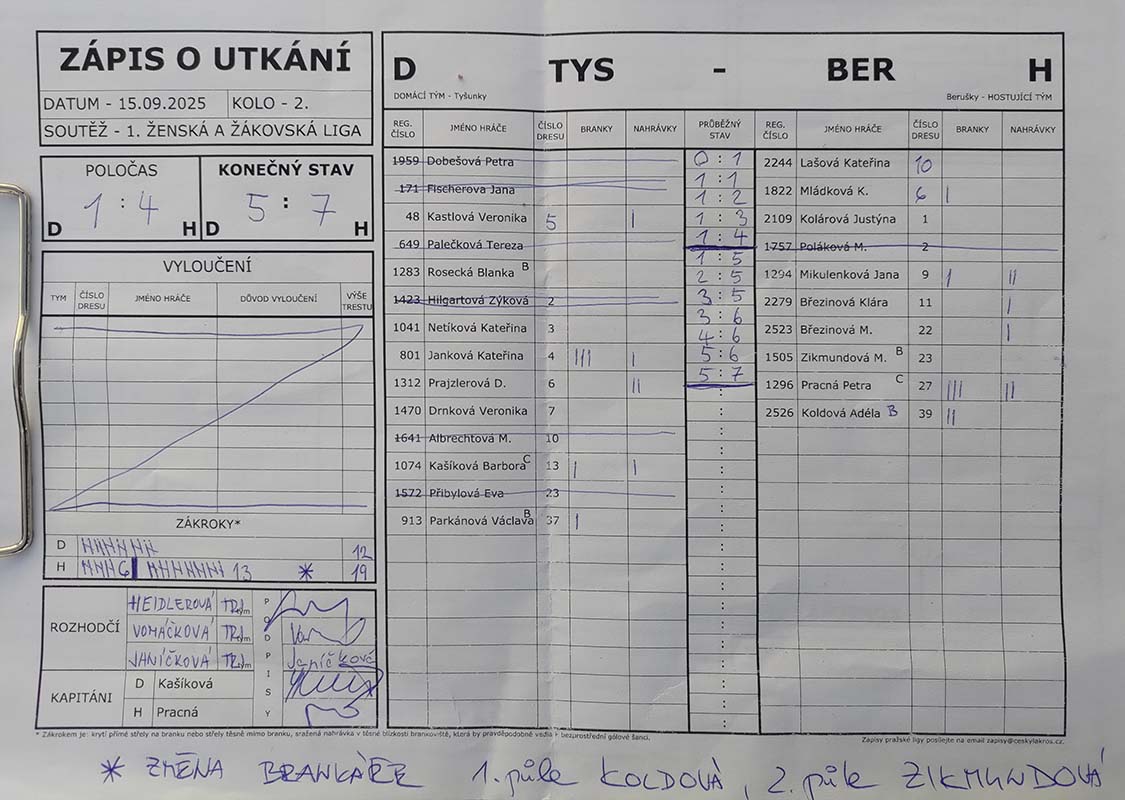 ZÁPIS O UTKÁNÍ
DATUM - 15.09.2025 KOLO - 2.
SOUTĚŽ - 1. ŽENSKÁ A ŽÁKOVSKÁ LIGA
POLOČAS KONEČNÝ STAV
1 : 4 5 : 7
D H D H
VYLOUČENÍ
TYM ČÍSLO DRESU JMÉNO HRÁČE DŮVOD VYLOUČENÍ VÝŠE TRESTU
ZÁKROKY*
D 12
H 6 13 * 19
ROZHODČÍ
HEIDLEROVÁ TRJ tým
VOMÁČKOVÁ TRJ tým
JANÍČKOVÁ TRJ tým
PODPISY
Janíčková
KAPITÁNI
D Kašíková
H Pracná
D TYS - BER H
DOMÁCÍ TÝM - Tyšunky Berušky - HOSTUJÍCÍ TÝM
REG. ČÍSLO JMÉNO HRÁČE ČÍSLO DRESU BRANKY NAHRÁVKY PRŮBĚŽNÝ STAV REG. ČÍSLO JMÉNO HRÁČE ČÍSLO DRESU BRANKY NAHRÁVKY
1959 Dobešová Petra
171 Fischerova Jana
48 Kastlová Veronika 5 |
649 Palečková Tereza
1283 Rosecká Blanka B
1423 Hilgartová Zýková 2
1041 Netíková Kateřina 3
801 Janková Kateřina 4 ||| |
1312 Prajzlerová D. 6 ||
1470 Drnková Veronika 7
1641 Albrechtová M. 10
1074 Kašíková Barbora C 13 | |
1572 Přibylová Eva 23
913 Parkánová Václava B 37 |
0 : 1
1 : 1
1 : 2
1 : 3
1 : 4
1 : 5
2 : 5
3 : 5
3 : 6
4 : 6
5 : 6
5 : 7
2244 Lašová Kateřina 10
1822 Mládková K. 6 |
2109 Kolárová Justýna 1
1757 Poláková M. 2
1294 Mikulenková Jana 9 | ||
2279 Březinová Klára 11 |
2523 Březinová M. 22 |
1505 Zikmundová M. B 23
1296 Pracná Petra C 27 ||| ||
2526 Koldová Adéla B 39 ||
* Zákrokem je: krytí přímé střely na branku nebo střely těsně mimo branku, sražená nahrávka v těsné blízkosti brankoviště, která by pravděpodobně vedla k bezprostřední gólové šanci.
Zápisy pražské ligy posílejte na email zapisy@ceskylakros.cz.
* ZMĚNA BRANKÁŘE 1. půle KOLDOVÁ, 2. půle ZIKMUNDOVÁ